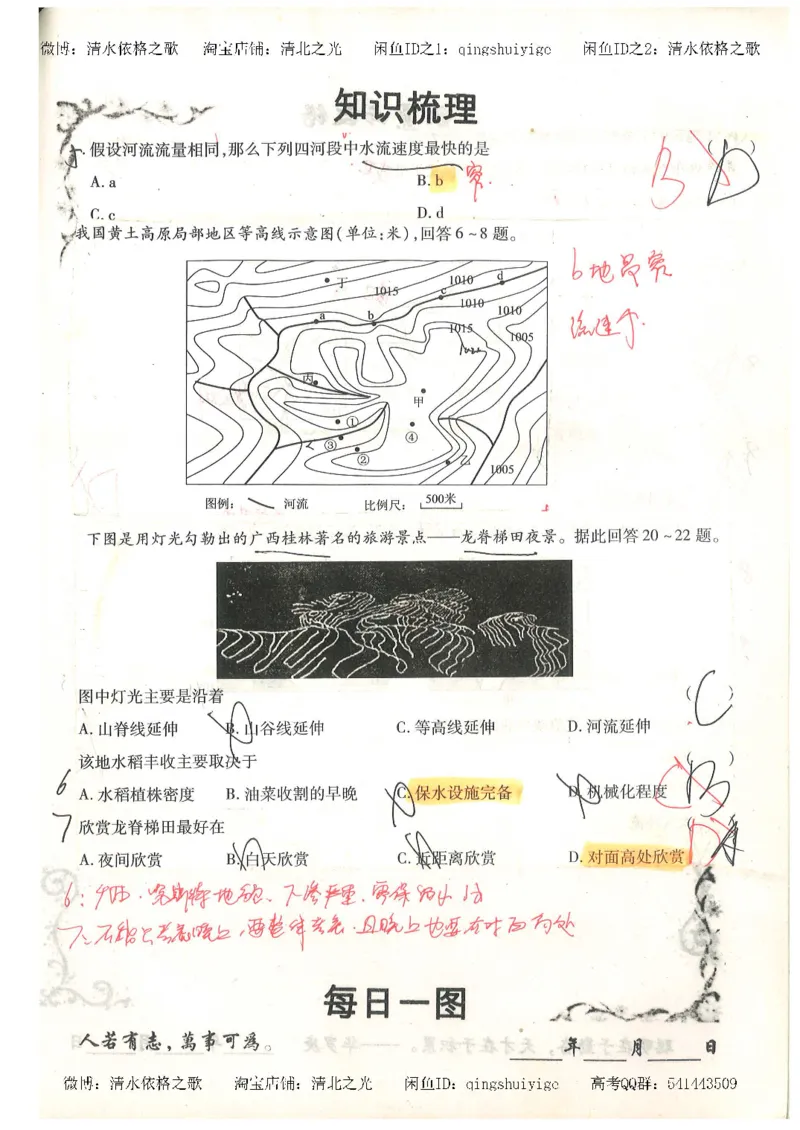 微博：清水依格之歌 淘宝店铺：清北之光 闲鱼ID之1：qingshuiyige 闲鱼ID之2：清水依格之歌
知识梳理
假设河流流量相同,那么下列四河段中水流速度最快的是 ( )
A. a B. b 窄. B
C. c D. d
我国黄土高原局部地区等高线示意图(单位:米),回答6~8题。
b地最窄
流速快.
丁 1015 1010 d
c 1010 1010
a b 1015 1005
丙 甲
① ④
③
② 乙 1005
图例： 河流 比例尺： 500米
下图是用灯光勾勒出的广西桂林著名的旅游景点——龙脊梯田夜景。据此回答20~22题。
图中灯光主要是沿着 ( C )
A. 山脊线延伸 B. 山谷线延伸 C. 等高线延伸 D. 河流延伸
该地水稻丰收主要取决于 ( )
6 A. 水稻植株密度 B. 油菜收割的早晚 C. 保水设施完备 D. 机械化程度
7 欣赏龙脊梯田最好在 ( )
A. 夜间欣赏 B. 白天欣赏 C. 近距离欣赏 D. 对面高处欣赏
每日一图
人若有志，萬事可為。 年 月 日
微博：清水依格之歌 淘宝店铺：清北之光 闲鱼ID：qingshuiyige 高考QQ群：541443509